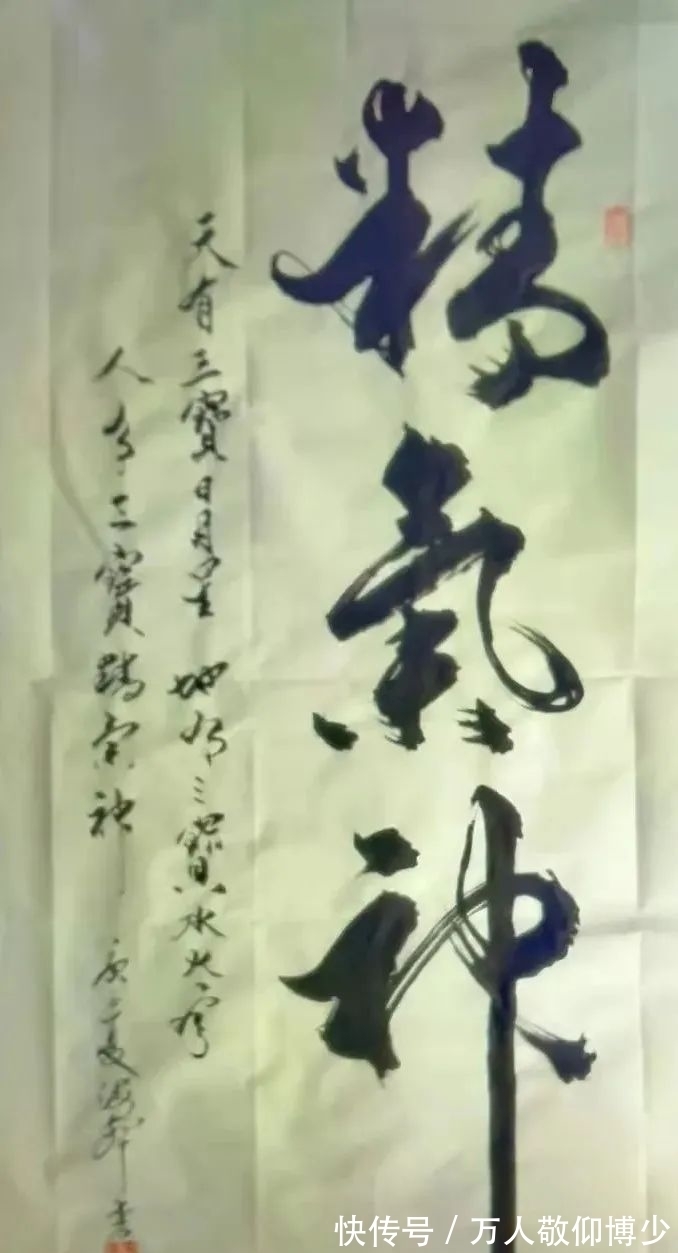 精氣神
天有三寶日月星 地有三寶水火
人有三寶精氣神 庚子夏 书
快传号 / 万人敬仰博少